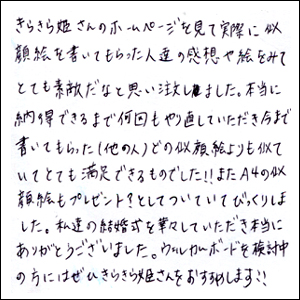 きらきら姫さんのホームページを見て実際に似
顔絵を書いてもらった人達の感想や絵をみて
とても素敵だなと思い注文しました。本当に
納得できるまで何回もやり直していただき今まで
書いてもらった(他の人)どの似顔絵よりも似て
いてとても満足できるものでした!!またA4の似
顔絵もプレゼント?としてついていてびっくりしま
した。私達の結婚式を華々していただき本当に
ありがとうございました。ウェルカムボードを検討中
の方にはぜひきらきら姫さんをおすすめします!!